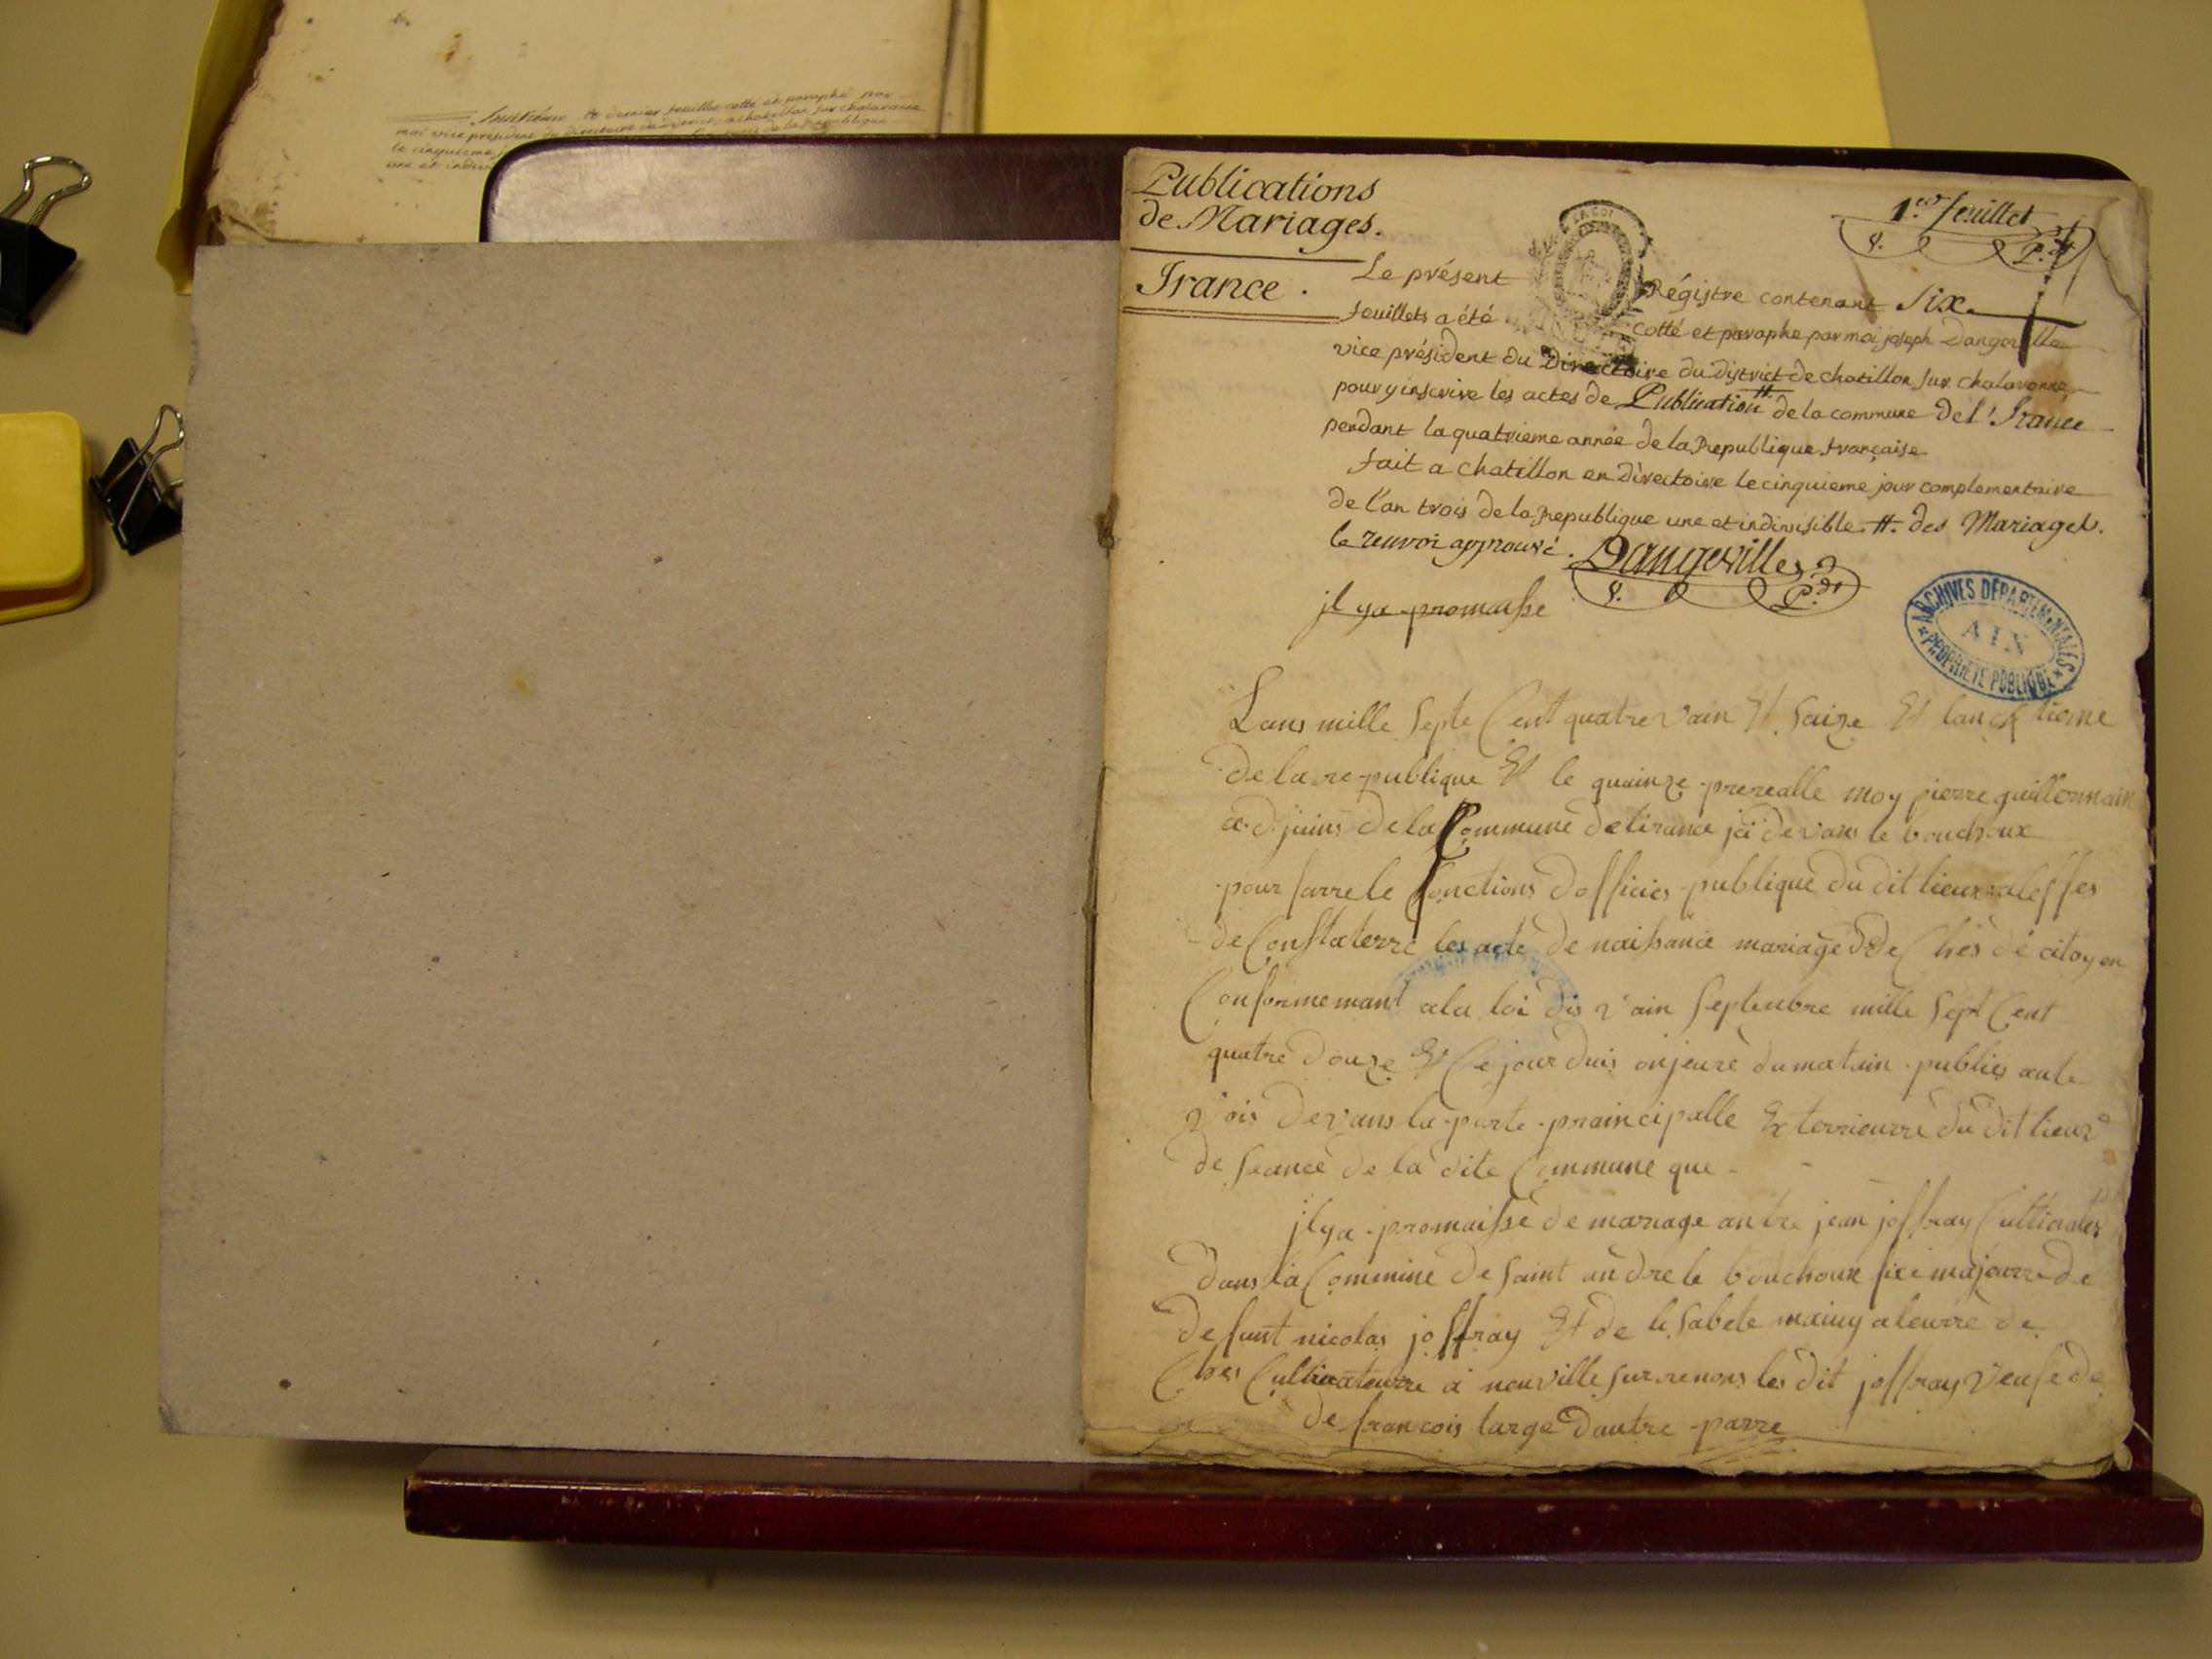 huitième et dernier feuillet cotté et paraphé par
moi vice président du directoire du district, a chatillon sur chalaronne
le cinquieme j
une et indivi
Publications
de Mariages.
France.
1.er feuillet
LA LOI
Le présent Régistre contenant Six
feuillets a été cotté et paraphe par moi joseph Dangeville
vice président du Directoire du district de chatillon sur chalaronne
pour y inscrire les actes de Publication # de la commune de l'Irance
pendant la quatrieme année de la Republique française
fait a chatillon en directoire le cinquieme jour complementaire
de l'an trois de la republique une et indivisible. #. des Mariages.
le renvoi approuvé. Dangeville
jl ya promaisse
ARCHIVES DEPARTEMENTALES
AIN
PROPRIETE PUBLIQUE
Lans mille Septe Cent quatre vain Et Saize Et lan
de la republique Et le quainze prerealle moy pierre guillermain
adjuins de la Commune de lirance jci devans le bouchoux
pour farre le fonctions dofficies publique du dit lieux aleffes
de Constaterre les acte de naissance mariage de citoyen
Conformemant a la loi dis vain Septenbre mille Sept Cent
quatre douze Et Ce jourduis onjeure du matain publies aute
vois devans la porte praincipalle Exterrieurre du dit lieux
de seance de la dite Commune que
jl ya promaisse de mariage antre jean joffray
dans la Commine de Saint andre le bouchoux fixe majeurre de
defunt nicolas joffray Et de lisabete
Cultivateurre a neuville sur renons les dit joffray veufe de
de francois large dautre parre